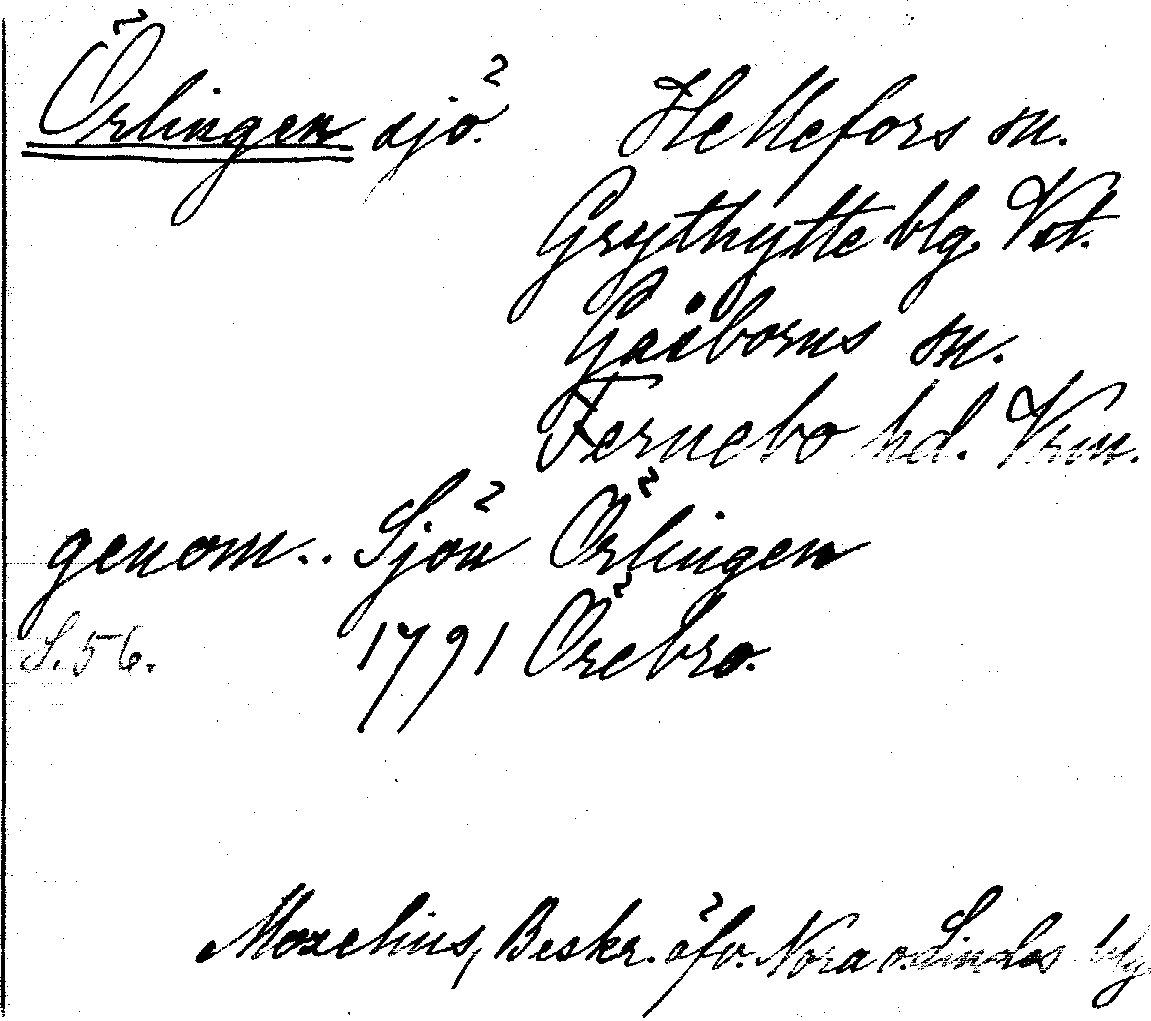 Örlingen sjö. Hellefors sn.
Grythytte blg. Vst.
Gåsborns sn.
Fernebo hd. Vrm.
genom.. Sjön Örlingen
S. 56. 1791 Örebro.
Moxelius, Beskr. öfv. Nora o. Lindes blg